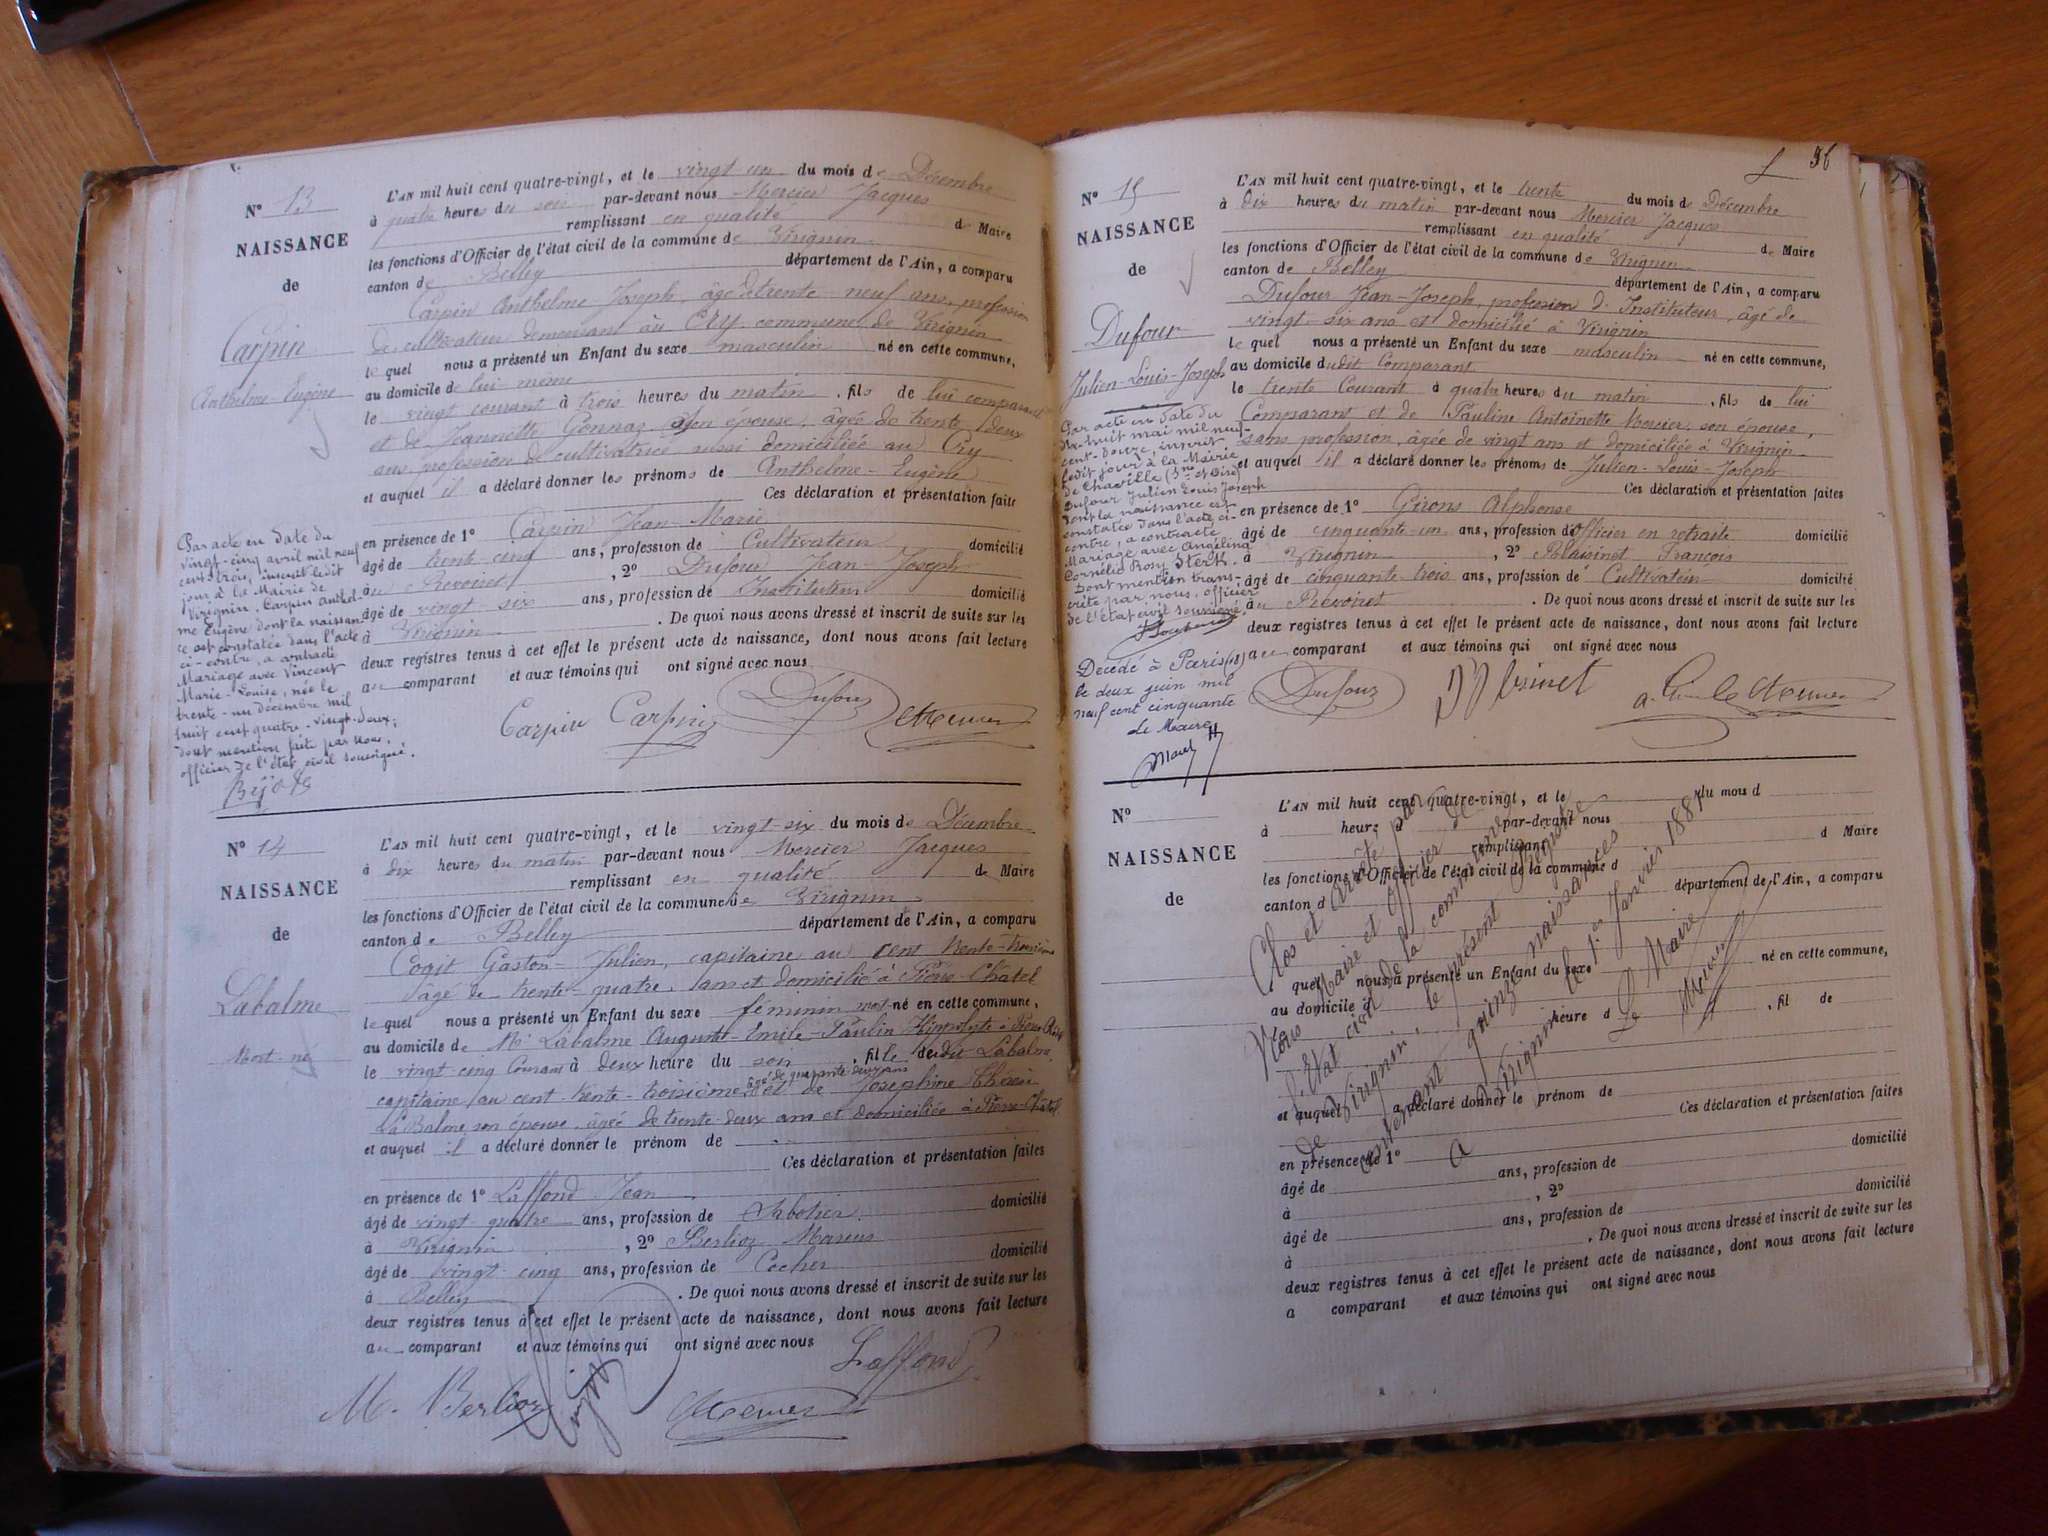 N° 13
NAISSANCE
de
Carpin
Anthelme-Eugène
L'AN mil huit cent quatre-vingt, et le vingt un du mois de Décembre
à quatre heures du soir par-devant nous Mercier Jacques
remplissant en qualité de Maire
les fonctions d'Officier de l'état civil de la commune de Virignin
canton de Belley département de l'Ain, a comparu
Carpin Anthelme Joseph, âgé de trente-neuf ans, profession
de cultivateur demeurant au Cry commune de Virignin
le quel nous a présenté un Enfant du sexe masculin né en cette commune,
au domicile de lui même
le vingt courant à trois heures du matin, fils de lui comparant
et de Jeannette Gonnaz son épouse, âgée de trente deux
ans, profession de cultivatrice aussi domiciliée au Cry
et auquel il a déclaré donner les prénoms de Anthelme-Eugène
Ces déclaration et présentation faites
en présence de 1° Carpin Jean Marie
âgé de trent cinq ans, profession de Cultivateur domicilié
au Revoiret, 2° Dufour Jean-Joseph
âgé de vingt six ans, profession de Instituteur domicilié
à Virignin. De quoi nous avons dressé et inscrit de suite sur les
deux registres tenus à cet effet le présent acte de naissance, dont nous avons fait lecture
au comparant et aux témoins qui ont signé avec nous
Carpin Carpin Dufour Mercier
Par acte en date du
vingt-cinq avril mil neuf
cent trois, inscrit ledit
jour à la Mairie de
Virignin, Carpin Anthel-
me Eugène dont la naissan-
ce est constatée dans l'acte
ci-contre, a contracté
Mariage avec Vincent
Marie-Louise, née le
trente-un décembre mil
huit cent quatre-vingt-deux;
dont mention faite par nous,
officier de l'état civil soussigné.
N° 14
NAISSANCE
de
Labalme
Mort-né
L'AN mil huit cent quatre-vingt, et le vingt-six du mois de Décembre
à dix heures du matin par-devant nous Mercier Jacques
remplissant en qualité de Maire
les fonctions d'Officier de l'état civil de la commune de Virignin
canton de Belley département de l'Ain, a comparu
Cogit Gaston-Julien, capitaine au cent trente-troisième
âgé de trente-quatre ans et domicilié à Pierre-Châtel
le quel nous a présenté un Enfant du sexe féminin mort né en cette commune,
au domicile de Mr Labalme August-Emile-Paulin Hippolyte à Pierre Châtel
le vingt-cinq Courant à deux heure du soir, fille de dit Labalme,
capitaine au cent-trente-troisième âgé de quarante deux ans et de Josephine Thérèse
La Balme son épouse, âgée de trente-deux ans et domiciliée à Pierre-Châtel
et auquel il a déclaré donner le prénom de
Ces déclaration et présentation faites
en présence de 1° Laffond Jean
âgé de vingt-quatre ans, profession de Sabotier domicilié
à Virignin, 2° Berlioz Marius
âgé de vingt-cinq ans, profession de Cocher domicilié
à Belley. De quoi nous avons dressé et inscrit de suite sur les
deux registres tenus à cet effet le présent acte de naissance, dont nous avons fait lecture
au comparant et aux témoins qui ont signé avec nous
Laffond
M. Berlioz Cogit Mercier
96
N° 15
NAISSANCE
de
Dufour
Julien-Louis-Joseph
L'AN mil huit cent quatre-vingt, et le trente du mois de Décembre
à dix heures du matin par-devant nous Mercier Jacques
remplissant en qualité de Maire
les fonctions d'Officier de l'état civil de la commune de Virignin
canton de Belley département de l'Ain, a comparu
Dufour Jean-Joseph, profession d'Instituteur, âgé de
vingt-six ans et domicilié à Virignin
le quel nous a présenté un Enfant du sexe masculin né en cette commune,
au domicile dudit Comparant
le trente Courant à quatre heures du matin, fils de lui
Comparant et de Pauline Antoinette Mercier, son épouse,
sans profession, âgée de vingt ans et domiciliée à Virignin
et auquel il a déclaré donner les prénoms de Julien-Louis-Joseph
Ces déclaration et présentation faites
en présence de 1° Girons Alphonse
âgé de cinquante-un ans, profession d'officier en retraite domicilié
à Virignin, 2° François
âgé de cinquante trois ans, profession de Cultivateur domicilié
au Revoiret. De quoi nous avons dressé et inscrit de suite sur les
deux registres tenus à cet effet le présent acte de naissance, dont nous avons fait lecture
au comparant et aux témoins qui ont signé avec nous
Dufour
Par acte en date du
dix-huit mai mil neuf-
cent-douze, inscrit
ledit jour à la Mairie
de Chaville (Sne et Oise)
Dufour Julien Louis Joseph
dont la naissance est
constatée dans l'acte ci-
contre, a contracté
Mariage avec Angélina
Cornélie Rosy Sterk.
Dont mention trans-
crite par nous, officier
de l'état civil soussigné
Décédé à Paris (18)
le deux juin mil
neuf cent cinquante
le Maire
N°
NAISSANCE
de
L'AN mil huit cent quatre-vingt, et le du mois d
à heure d par-devant nous
remplissant d Maire
les fonctions d'Officier de l'état civil de la commune d
canton d département de l'Ain, a comparu
quel nous a présenté un Enfant du sexe né en cette commune,
au domicile d
heure d, fil de
et auquel a déclaré donner le prénom de
Ces déclaration et présentation faites
en présence de 1°
âgé de ans, profession de domicilié
à, 2°
âgé de ans, profession de domicilié
à. De quoi nous avons dressé et inscrit de suite sur les
deux registres tenus à cet effet le présent acte de naissance, dont nous avons fait lecture
a comparant et aux témoins qui ont signé avec nous
Clos et arrêté par
Nous Maire et Officier de
l'Etat civil de la commune
de Virignin, le présent Régistre
contenant quinze naissances
a Virignin le 1er Janvier 1881
Le Maire
Mercier